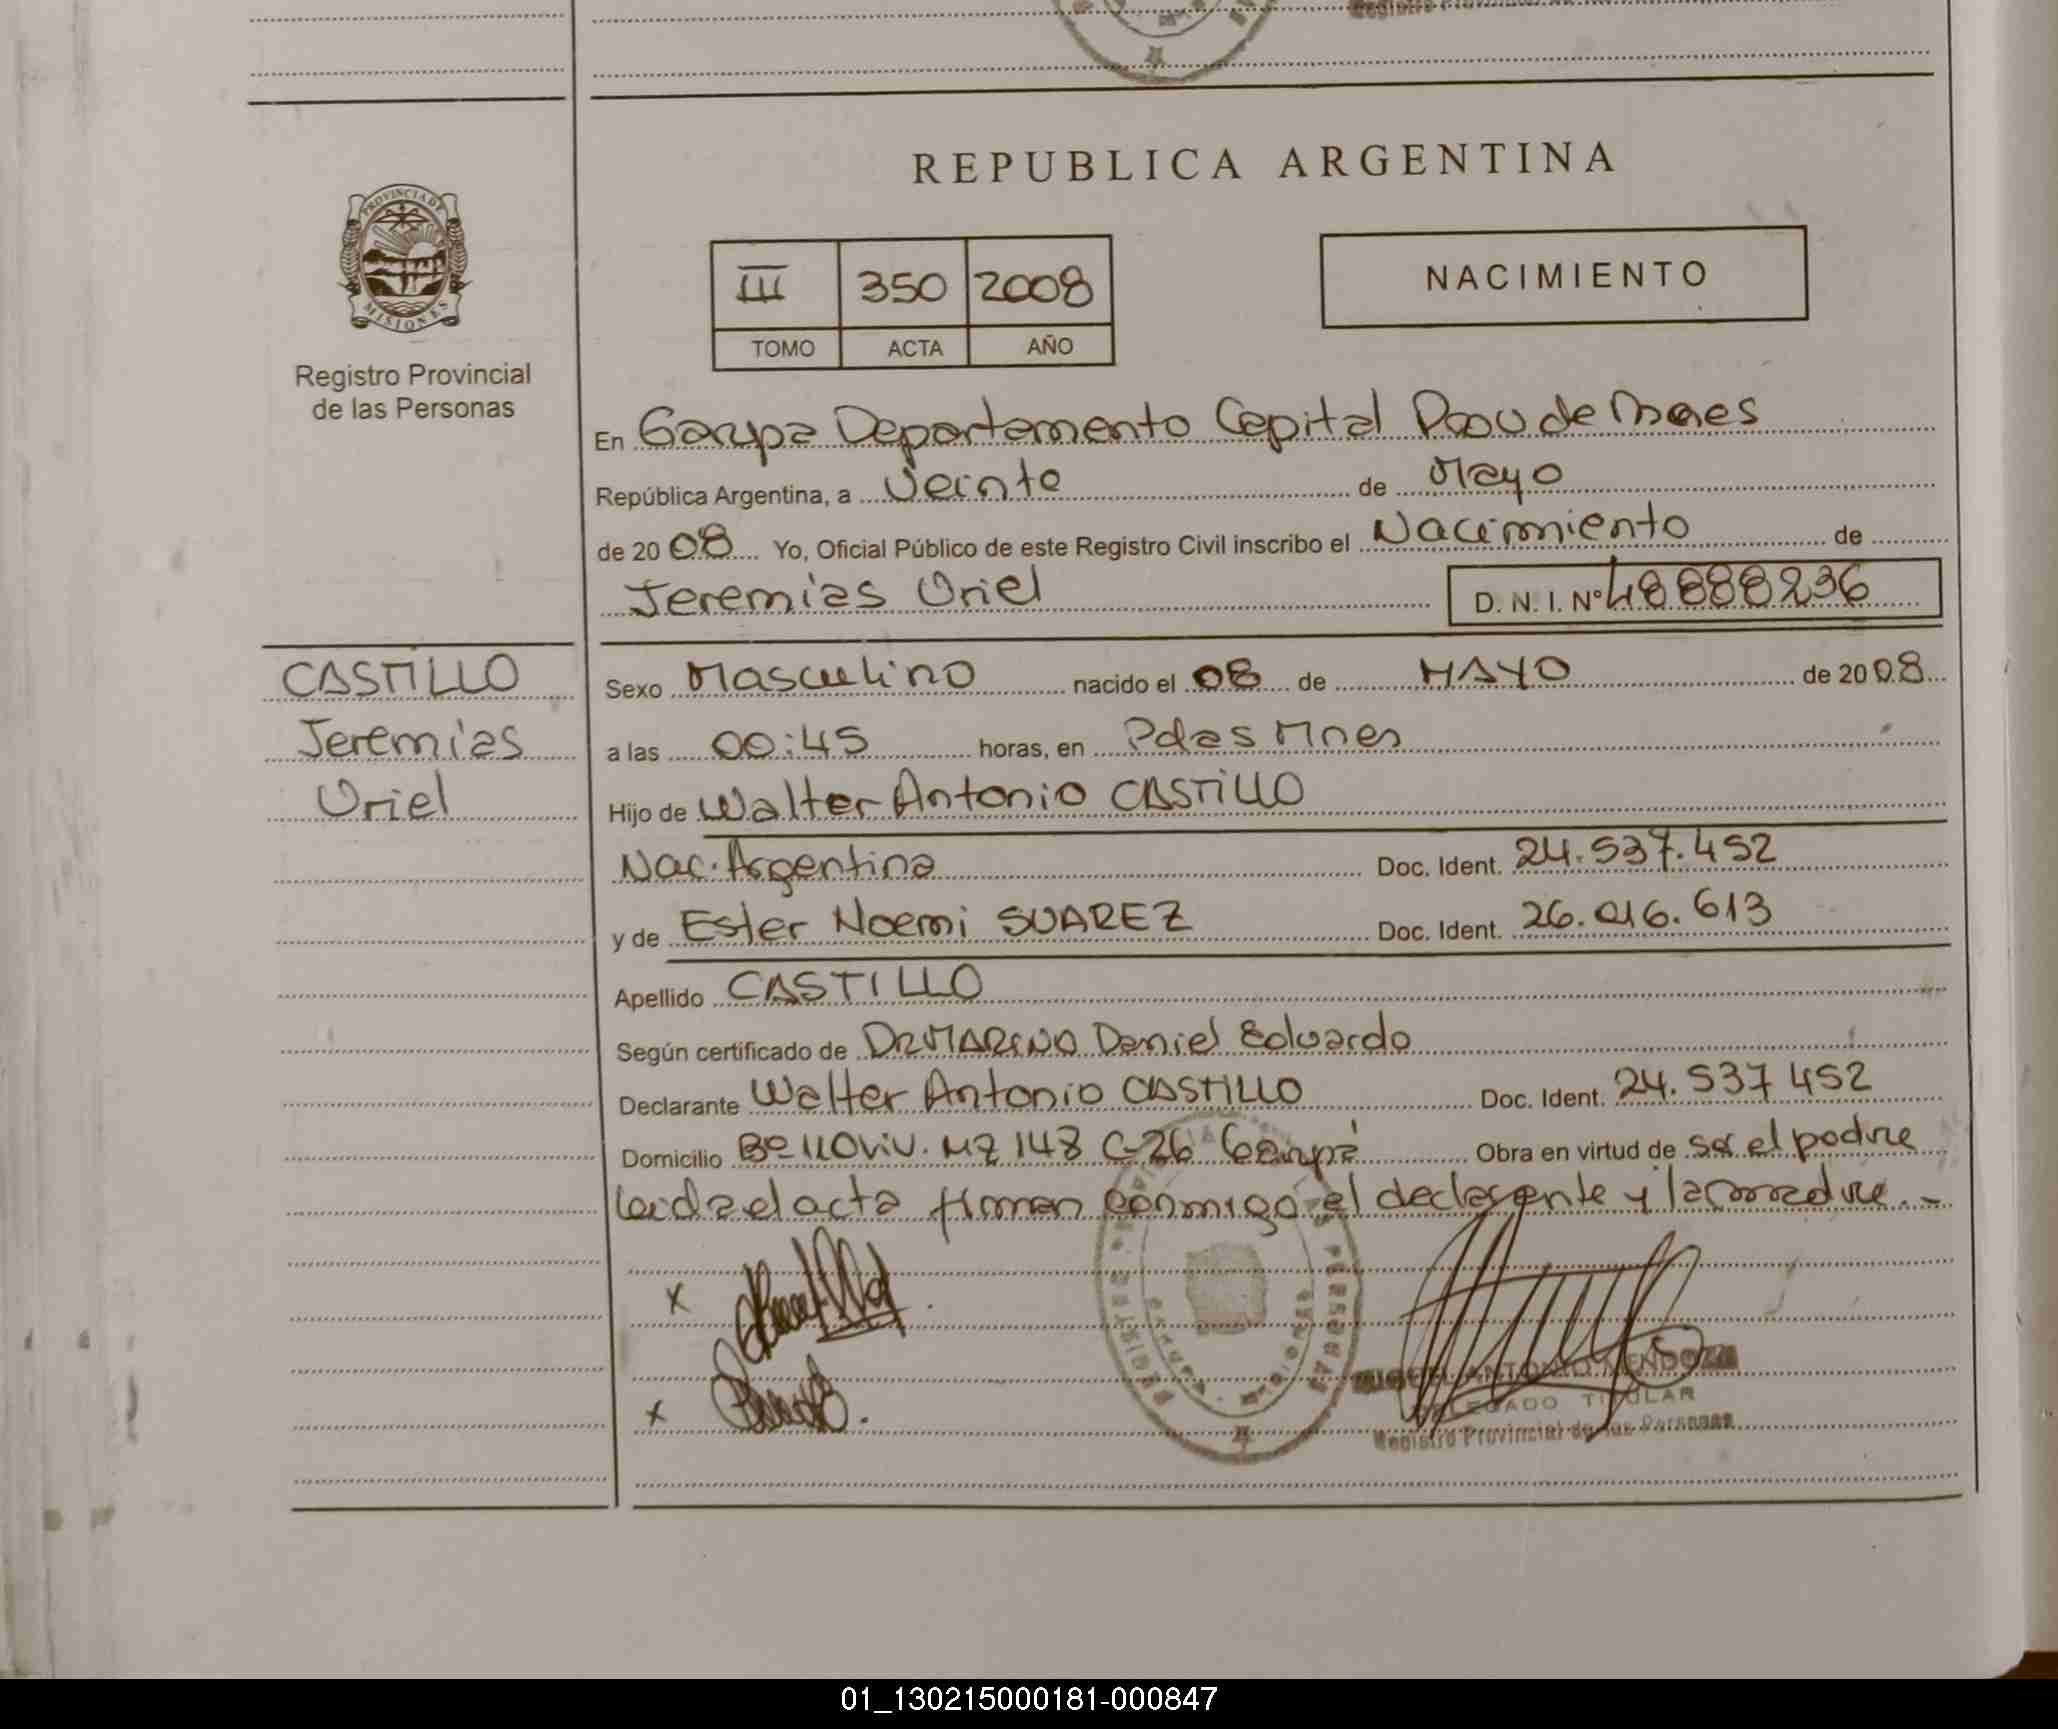 REPUBLICA ARGENTINA
PROVINCIA DE
MISIONES
Registro Provincial
de las Personas
III 350 2008
TOMO ACTA AÑO
NACIMIENTO
En Garupa Departamento Capital Pcov de Mnes
República Argentina, a Veinte de Mayo
de 2008 Yo, Oficial Público de este Registro Civil inscribo el Nacimiento de
Jeremias Uriel D. N. I. Nº 48888236
CASTILLO
Jeremias
Uriel
Sexo Masculino nacido el 08 de MAYO de 2008
a las 00:45 horas, en Pdas Mnes
Hijo de Walter Antonio CASTILLO
Nac. Argentina Doc. Ident. 24.537.452
y de Ester Noemi SUAREZ Doc. Ident. 26.016.613
Apellido CASTILLO
Según certificado de Dr MARINO Daniel Eduardo
Declarante Walter Antonio CASTILLO Doc. Ident. 24.537 452
Domicilio Bº 110 Viv. MZ 148 C-26 Garupá Obra en virtud de ser el padre
leida el acta firman conmigo el declarante y la madre.-
x
x
MIGUEL ANTONIO MENDOZA
DELEGADO TITULAR
Registro Provincial de las Personas
01_130215000181-000847